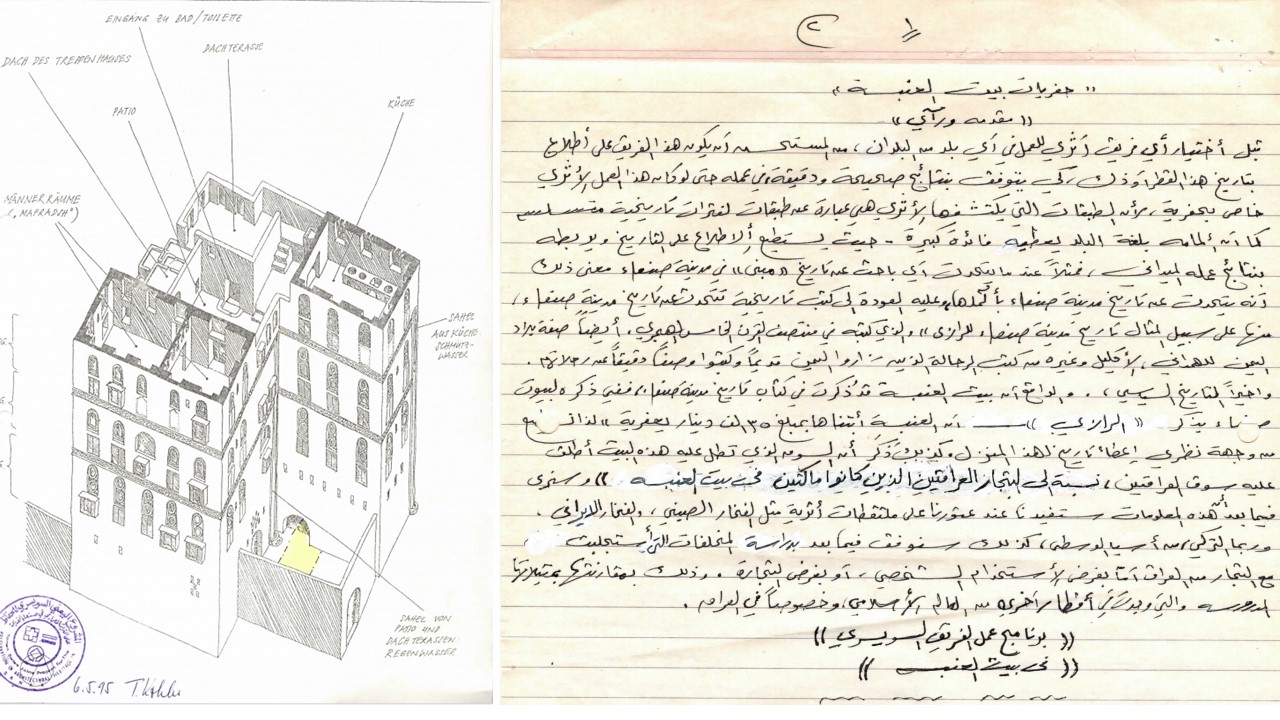 EINGANG ZU BAD/TOILETTE
DACHTERASSE
DACH DES TREPPENHAUSES
PATIO
KÜCHE
MÄNNERRÄUME
"MAFRADSH")
SAHEL
AUS KÜCHE
SCHMUTZ-
WASSER
SAHEL VON
PATIO UND
DACHTERASSEN
REGENWASSER
6.5.95
٢
" حفريات بيت العنبسة "
(( مقدمه ورأي ))
قبل أختيار أي فريق أثري للعمل في أي بلد من البلدان ، من المستحسن أن يكون هذا الفريق على أطلاع
بتاريخ هذا القطر أو ذاك ، كي يتوفق بنتائج صحيحة ودقيقة في عمله حتى لو كان هذا العمل الأثري
خاص بحفرية ، لأن الطبقات التي يكتشفها الأثري هي عبارة عن طبقات لفترات تاريخية متسلسلة
كما أن ألمامه بلغة البلد يعطيه فائدة كبيرة - حيث يستطيع ألاطلاع على التاريخ ويربطه
بنتائج عمله الميداني ، فمثلاً عندما يتحدث أي باحث عن تاريخ «مبنى» في مدينة صنعاء معنى ذلك
أنه يتحدث عن تاريخ مدينة صنعاء بأكملها، وعليه العودة الى كتب تاريخية تتحدث عن تاريخ مدينة صنعاء ،
منها على سبيل المثال تاريخ مدينة صنعاء للرازي » والذي كتبه في منتصف القرن الخامس الهجري ، أيضاً صفة بلاد
اليمن للهمداني ، الأكليل وغيره من كتب الرحالة الذين زاروا اليمن قديماً وكتبوا وصفاً دقيقاً عن رحلاتهم .
واخيراً التاريخ السياسي ، . والواقع أن بيت العنبسة قد ذكرت في كتاب تاريخ مدينة صنعاء، ففي ذكره لبيوت
صنعاء يذكر « الرازي » أن العنبسة أبتناها بمبلغ ٣٥ الف دينار بعفرية "
من وجهة نظري إعطاء تاريخ لهذا المنزل وكذلك ذكر أن السوق الذي تطل عليه هذه البيت أطلق
عليه سوق العراقيين ، نسبة الى التجار العراقيين الذين كانوا ماكثين في بيت العنبسه )) وسنرى
فيما بعد أن هذه المعلومات ستفيدنا عند عثورنا على ملتقطات أثرية مثل الفخار الصيني ، والفخار الايراني .
وربما التركي ، من أسيا الوسطى ، كذلك سنوفق فيما بعد بدراسة المتخلفات التي أستجلبت
مع التجار من العراق أما بغرض الأستخدام الشخصي ، أو بغرض التجارة . وذلك بمقارنتها بمثيلاتها
المدروسه والتي وجدت في أقطار أخرى من العالم الأسلامي ، وخصوصاً في العراق .
(( برنامج عمل الفريق السويسري ))
(( في بيت العنبسه ))